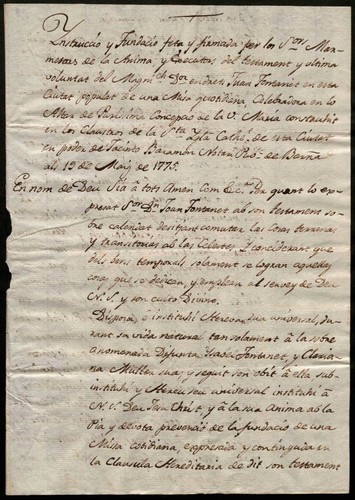 Institució y Fundació feta y firmada per los Srs. Mar-
messors de la Anima, y Executors del testament y ultima
voluntat del Magnch. Dor. en dret Juan Fontanet en esta
Ciutat populat de una Missa quotidiana, Celebradora en lo
Altar de Purissima Concepció de la V. Maria construhit
en los Claustros de la Sta. Catthl. de esta Ciutat
en poder de Jacinto Baramon Notari Pubc. de Barna
als 12 de Maig de 1775.
En nom de Deu Sia à tots Amen Com Per quant lo ex-
presat Sor. Dr. Joan Fontanet ab son testament so-
bre calendat desitjant comutar las cosas terrenas
y transitorias ab las Celestes Y considerant que
dels bens temporals, solament se logran aquelles
cosas que se dedican, y emplean al servey de Deu
N. S. y son culto Divino.
Disposa, e instituhí Hereva sua universal, du-
rant sa vida natural tan solament à la sobre
anomenada Difunta Fontanet, y
Muller sua, y seguit son obit à ella sub-
instituhí y Hereu seu universal instituhí à
N. S. Deu Jesu Christ, y à la sua Anima ab la
Pia, y devota prevenció de la fundació de una
Missa cotidiana, expresada y continguda en
la Clausula Hereditaria de dit son testament